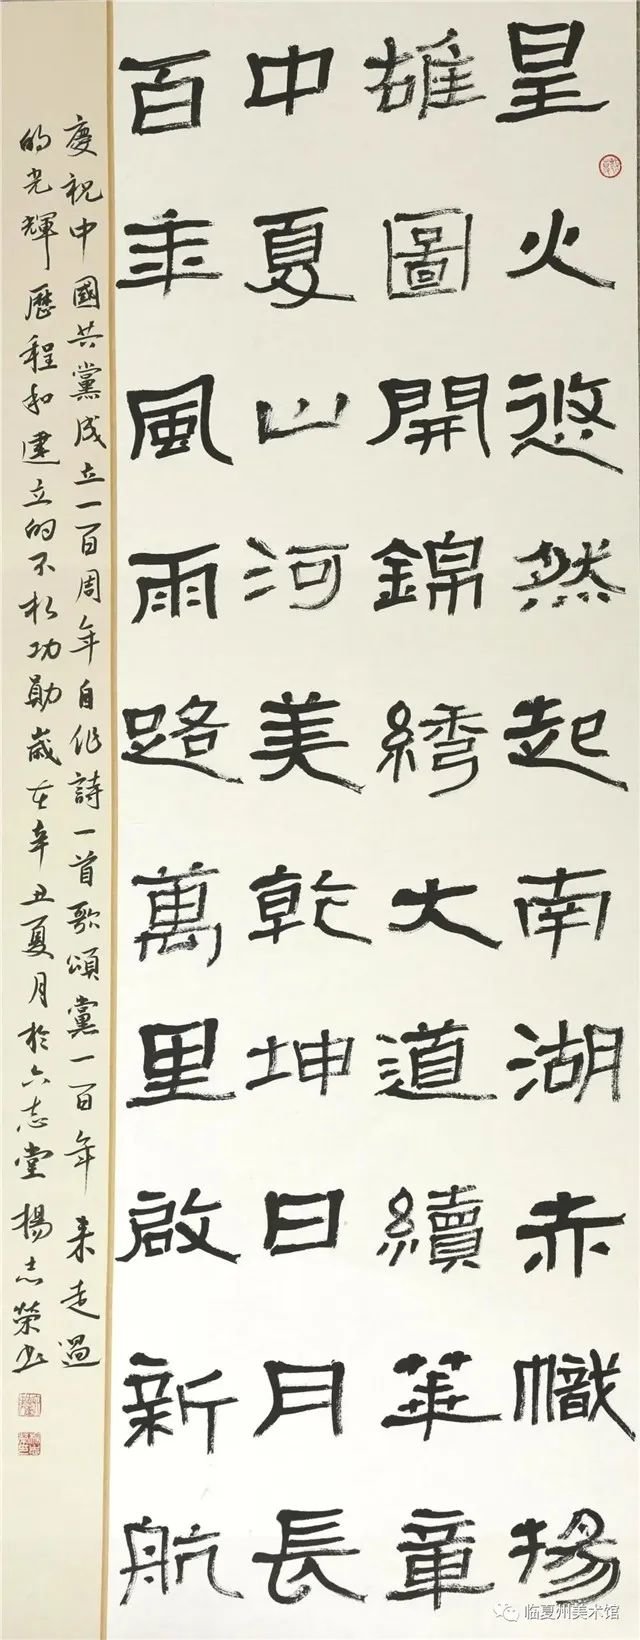 星火悠然起南湖赤幟揚
雄圖開錦綉大道續華章
中夏山河美乾坤日月長
百年風雨路萬里啟新航
慶祝中國共黨成立一百周年自作詩一首歌頌黨一百年来走過
的光輝歷程和建立的不朽功勛歲在辛丑夏月於六志堂楊志榮书
临夏州美术馆